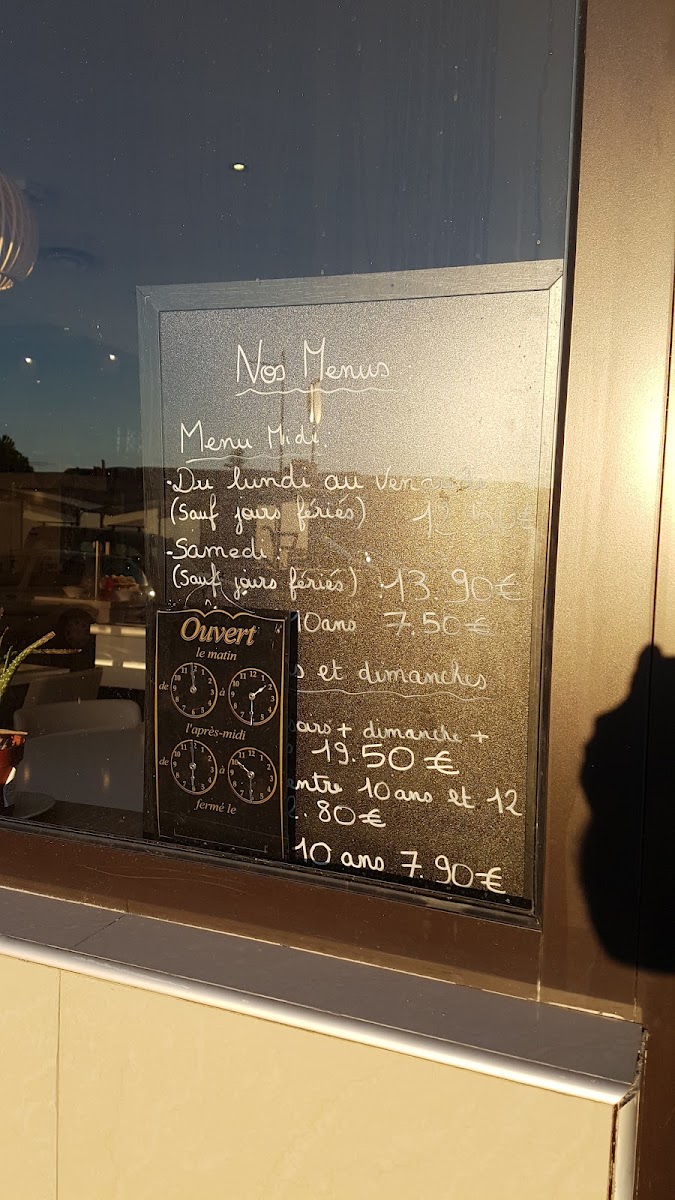 Nos Menus :
Menu Midi.
• Du lundi au Vendredi
(Sauf jours fériés) 12.50€
• Samedi :
(Sauf jours fériés) : 13.90€
10ans 7.50€
s et dimanches
soirs + dimanche +
19.50€
entre 10 ans et 12
.80€
10 ans 7.90€
Ouvert
le matin
de 11 12 1 2 3 à 11 12 1 2 3
l'après-midi
de 11 12 1 2 3 à 11 12 1 2 3
fermé le